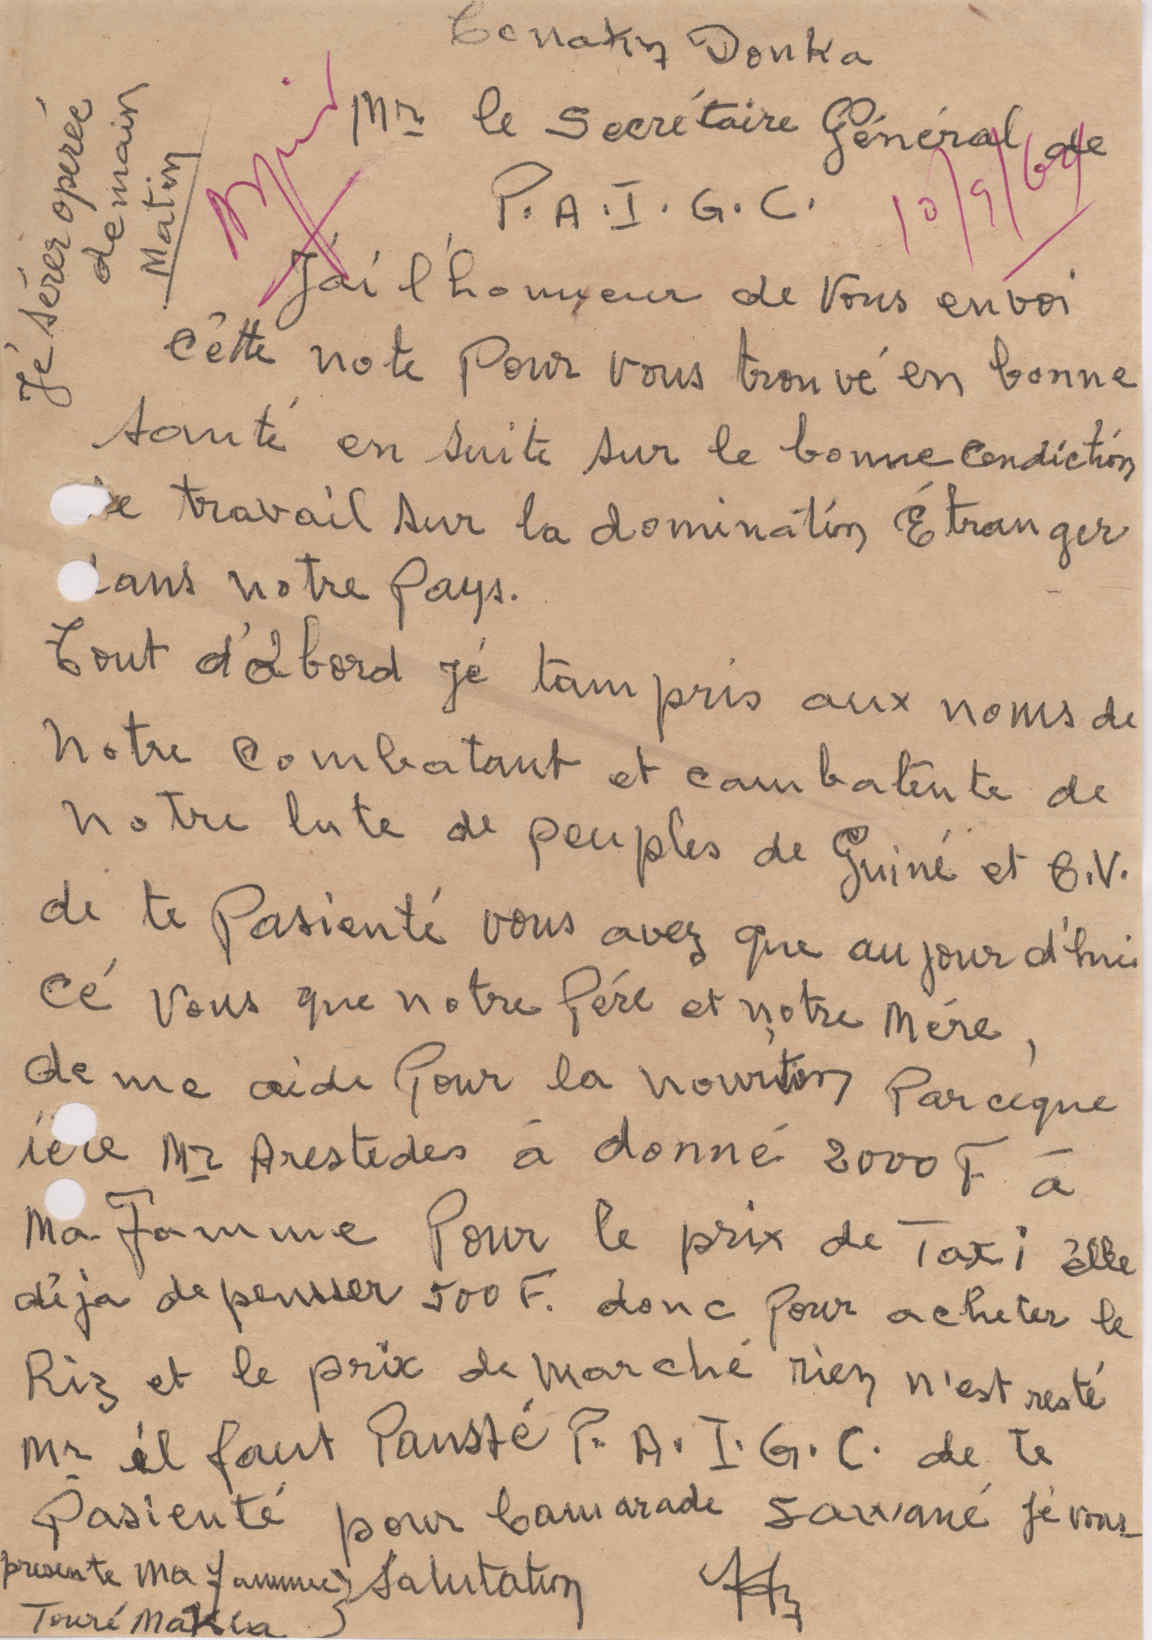 Conakry Donka
Mr le Secrétaire Général de
P.A.I.G.C.
10/9/64
Jé sérer operéé
demain
Matin
J'ai l'honneur de vous envoi
cêtte note pour vous trouvé en bonne
santé en suite sur le bonne condiction
de travail sur la domination Étranger
dans notre pays.
Tout d'abord jé tam pris aux noms de
notre combatant et cambatente de
notre lute de peuples de Guiné et C.V.
de te Pasienté vous avez que aujourd'hui
cé vous que notre Pére et notre Mére,
de me aide pour la nourriton parceque
ière Mr Arestedes à donné 2000 F à
Ma Famme pour le prix de Taxi élle
déja depensser 500 F. donc pour acheter le
Riz et le prix de marché rien n'est resté
Mr él faut Pansté P.A.I.G.C. de te
Pasienté pour Camarade Sawané jé vous
presente Ma fammee Salutation
Touré Makia